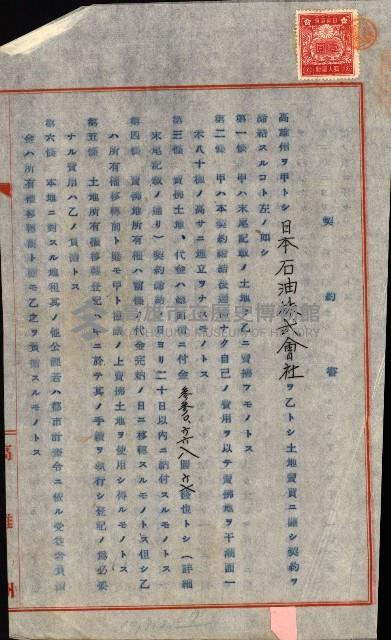 契約書
高雄州ヲ甲トシ日本石油株式會社ヲ乙トシ土地賣買ニ關シ契約ヲ
締結スルコト左ノ如シ
第一條 甲ハ末尾記載ノ土地ヲ乙ニ賣拂フモノトス
第二條 甲ハ本契約締結後遲滯ナク自己ノ費用ヲ以テ賣拂地ヲ干潮面一
米八十糎ノ高サニ地立ヲナスモノトス
第三條 賣拂土地ノ代金ハ總面積ニ付金
圓 錢也トシ(詳細
末尾記載ノ通リ)契約締結ノ日ヨリ二十日以內ニ納付スルモノトス
第四條 賣拂地所有權ハ前條ノ代金完納ノ日ニ移轉スルモノトス但シ乙
ハ所有權移轉前ト雖モ甲ト協議ノ上賣拂土地ヲ使用シ得ルモノトス
第五條 土地所有權移轉登記ハ甲ニ於テ其ノ手續ヲ執行シ登記ノ爲必要
ナル費用ハ乙ノ負擔トス
第六條 本地ニ對スル地租其ノ他公課若ハ都市計畫令ニ依ル受益者負擔
金ハ所有權移轉前ト雖モ乙之ヲ負擔スルモノトス
高雄州